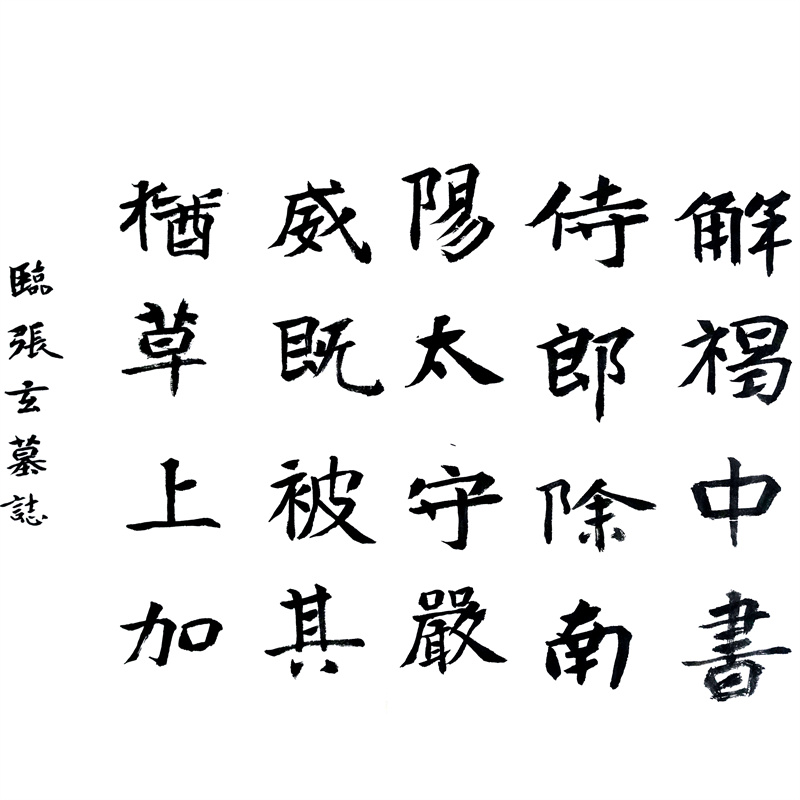 解褐中書
侍郎除南
陽太守嚴
威既被其
猶草上加
臨張玄墓誌